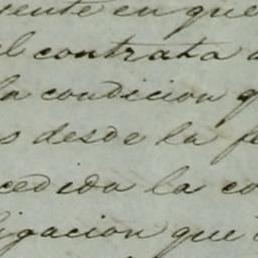 uente en que
el contrata
la condicion q
s desde la fe
cedida la co
ligacion que